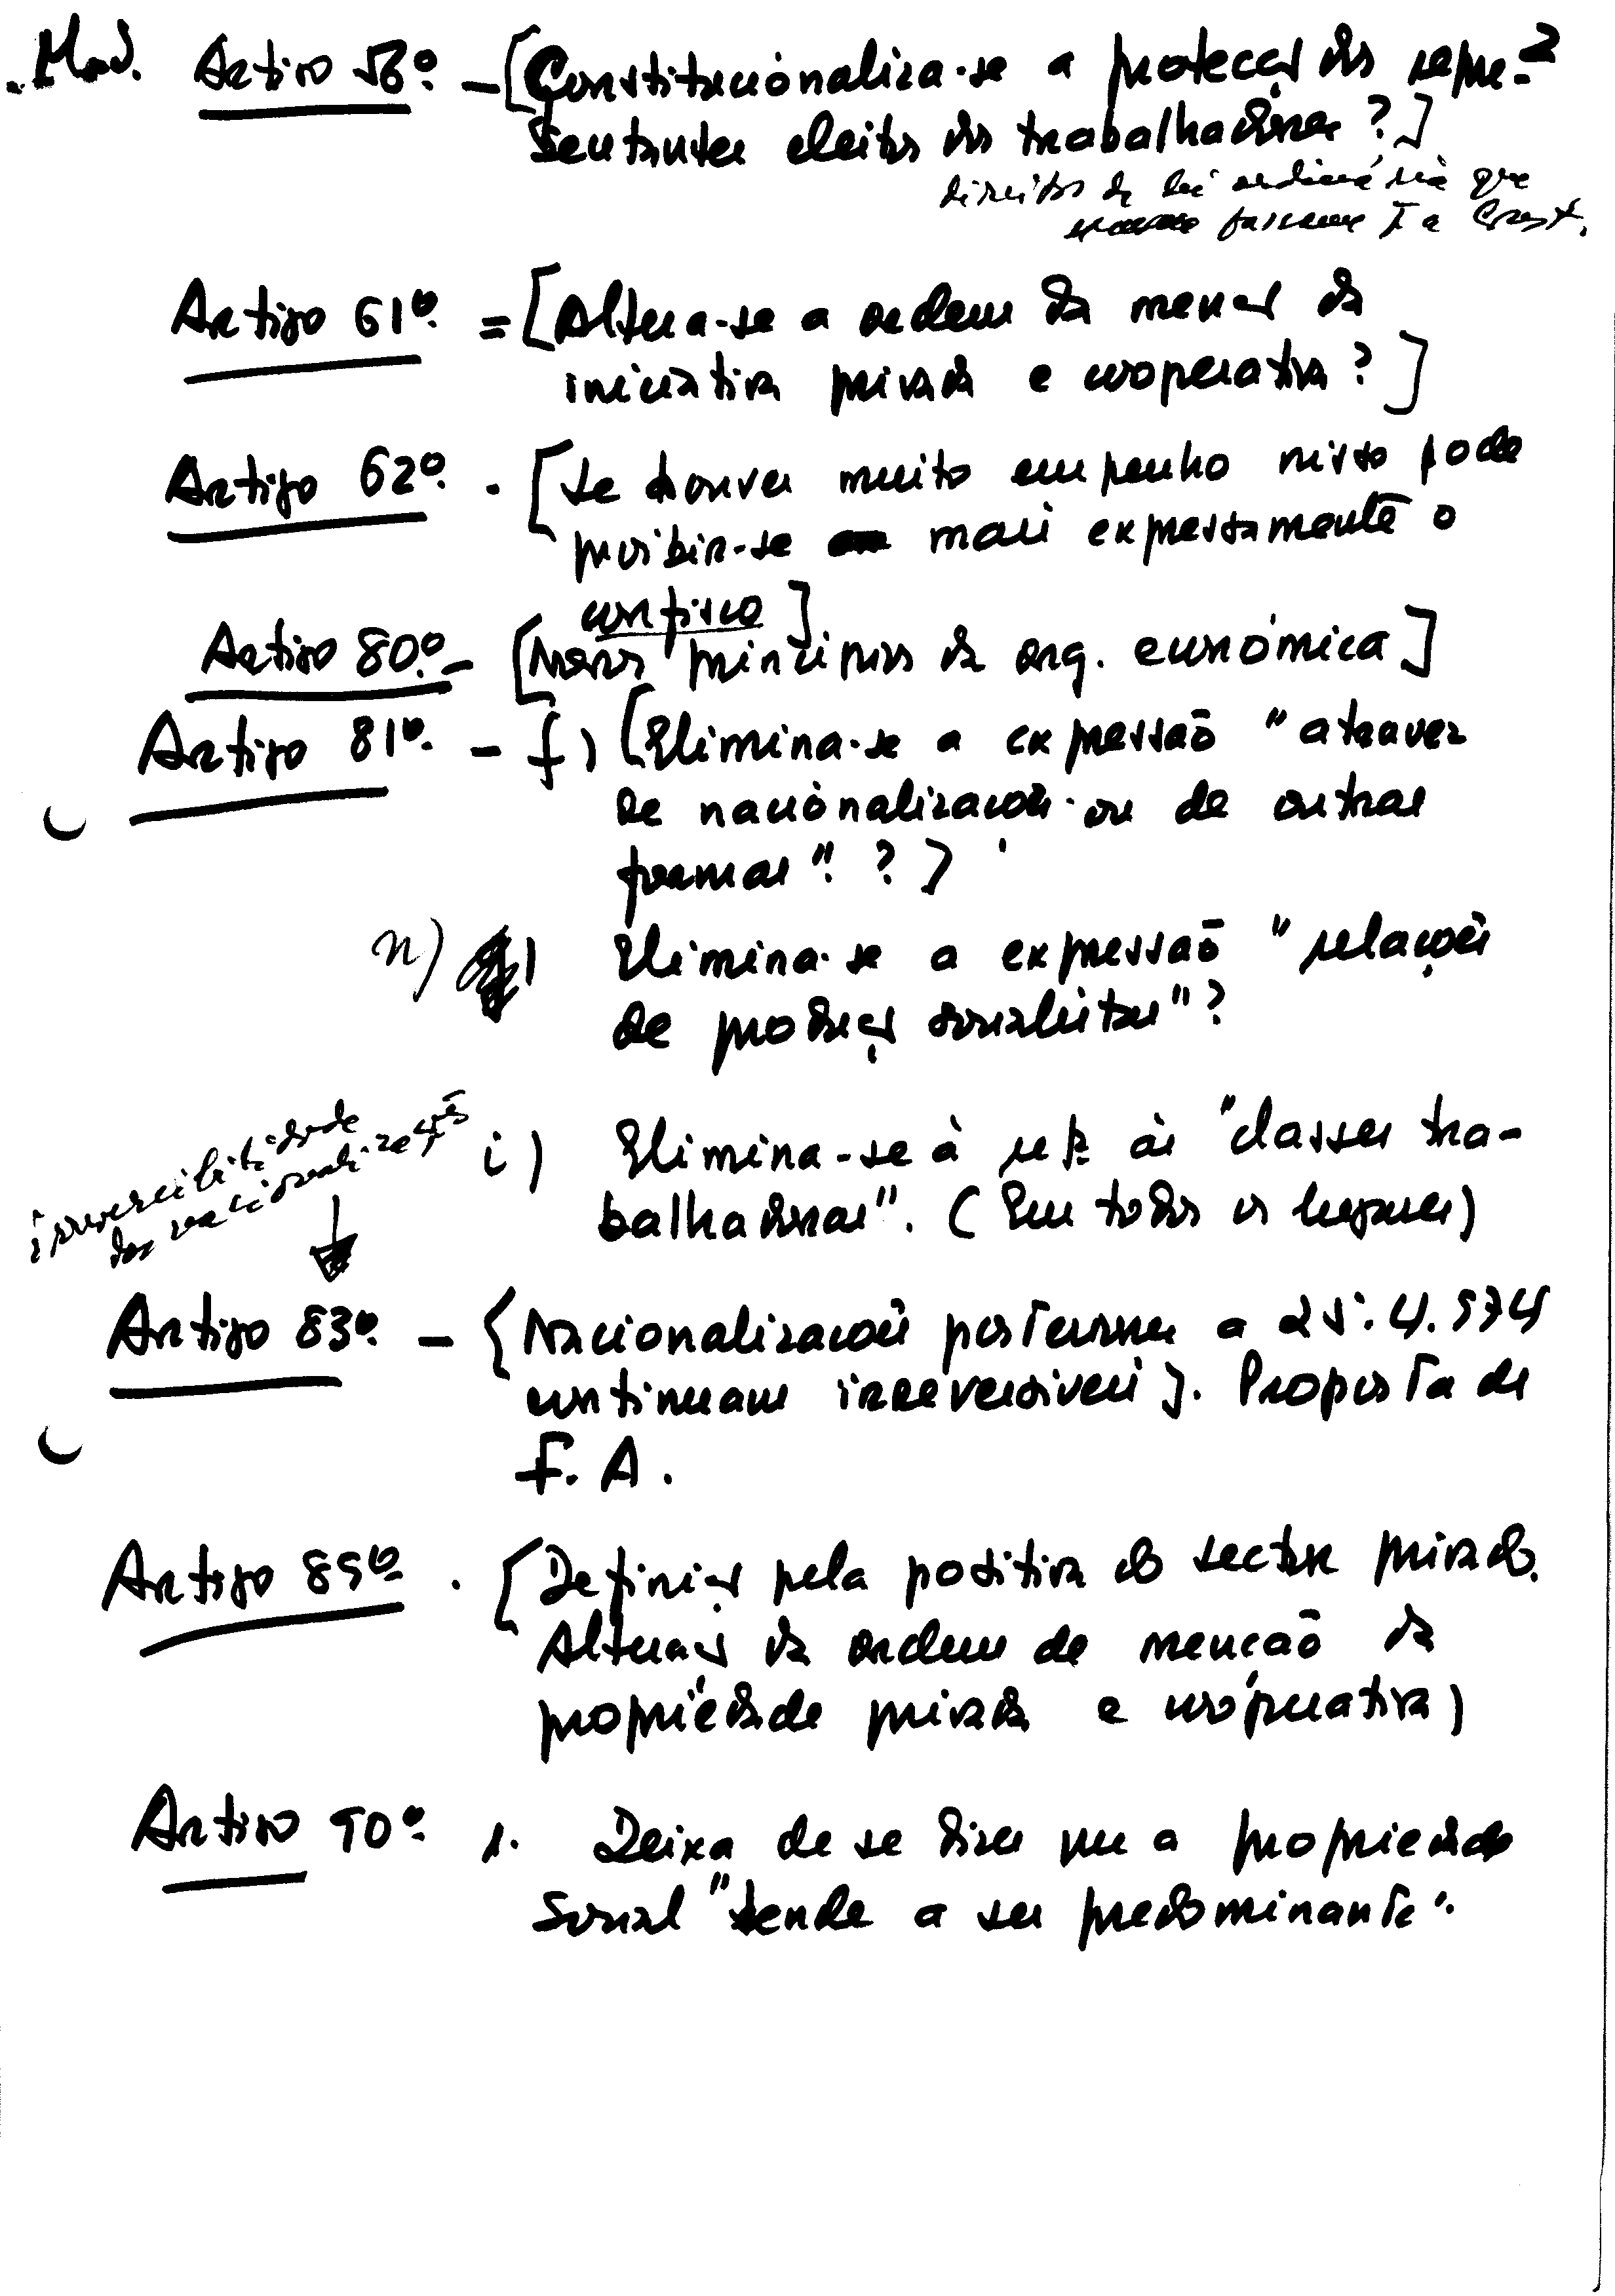 Mod. Artigo 56º. - [Constitucionaliza-se a protecção dos repre-
sentantes eleitos dos trabalhadores?]
direitos da lei ordinária que
passam p/ a Const.
Artigo 61º. = [Altera-se a ordem da menção da
iniciativa privada e cooperativa?]
Artigo 62º. . [Se houver muito empenho nisso pode
proibir-se mais expressamente o
confisco]
Artigo 80º. - [Novos princípios da org. económica]
Artigo 81º. - f) (Elimina-se a expressão "através
de nacionalizações ou de outras
formas"?)
n) Elimina-se a expressão "relações
de produção socialistas"?
irreversibilidade
das nacionalizações
i) Elimina-se à refª às "classes tra-
balhadoras". (Em todos os lugares)
Artigo 83º. - {Nacionalizações posteriores a 25.4.974
continuam irreversíveis}. Proposta de
F. A.
Artigo 89º . [Definição pela positiva do sector privado.
Alteração da ordem de menção da
propriedade privada e cooperativa)
Artigo 90º. 1. Deixa de se dizer que a propriedade
Social "tende a ser predominante".